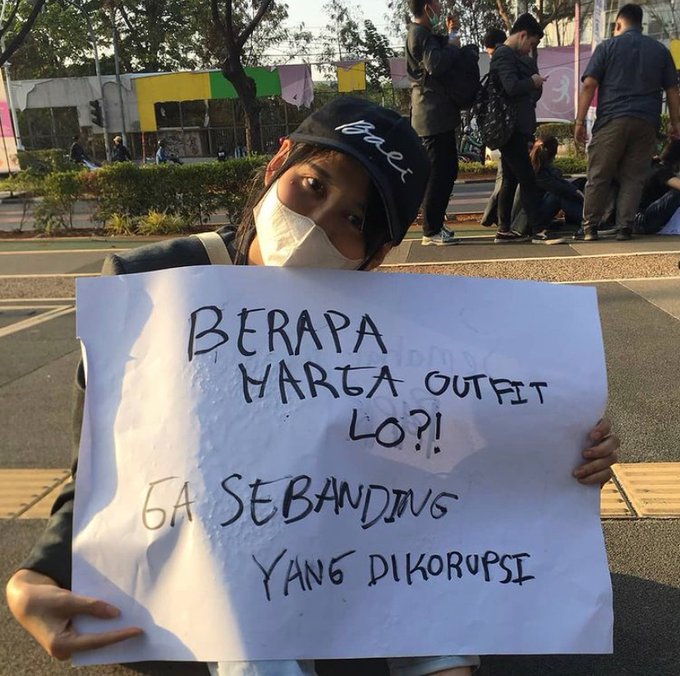 Bali
BERAPA
HARGA OUTFIT
LO?!
GA SEBANDING
YANG DIKORUPSI